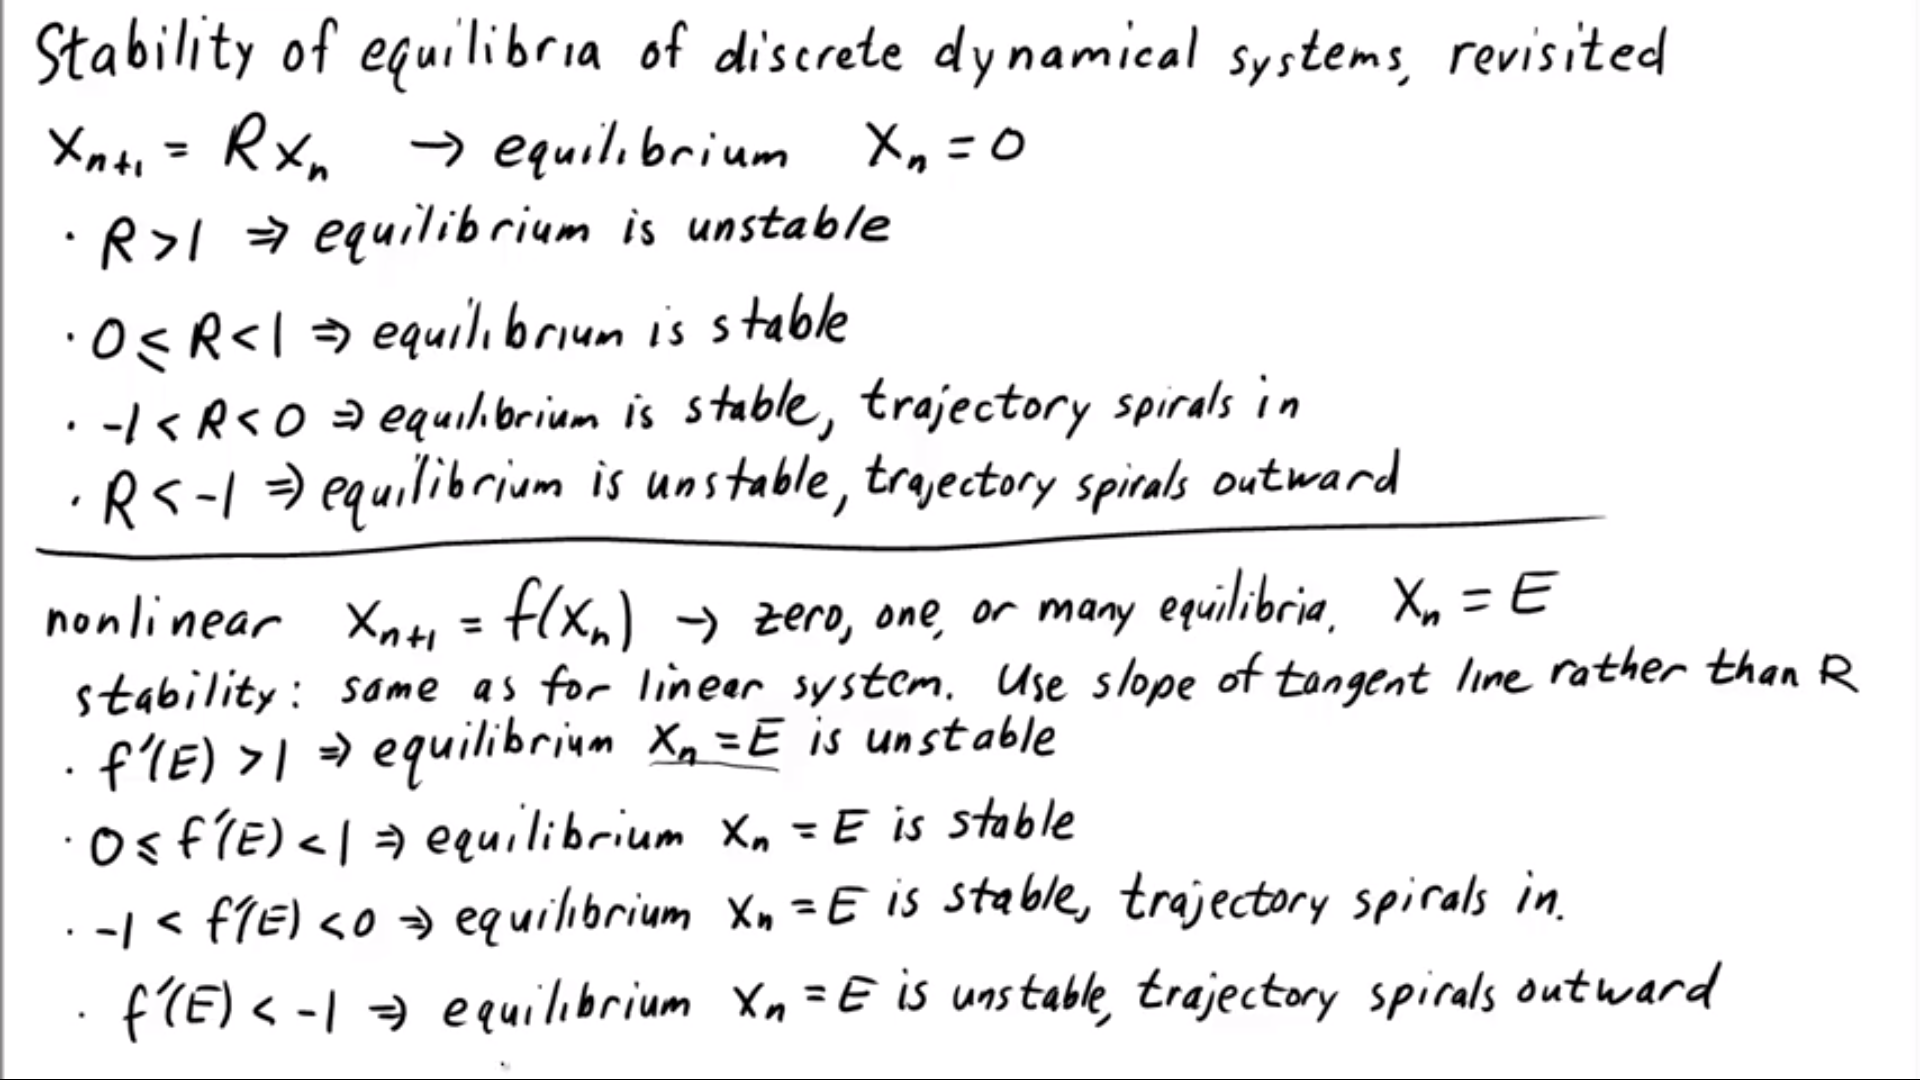 Stability of equilibria of discrete dynamical systems, revisited
Xₙ₊₁ = RXₙ → equilibrium Xₙ = 0
· R>1 ⇒ equilibrium is unstable
· 0 ≤ R < 1 ⇒ equilibrium is stable
· -1 < R < 0 ⇒ equilibrium is stable, trajectory spirals in
· R < -1 ⇒ equilibrium is unstable, trajectory spirals outward
nonlinear Xₙ₊₁ = f(Xₙ) → zero, one, or many equilibria. Xₙ = E
stability: same as for linear system. Use slope of tangent line rather than R
· f'(E) > 1 ⇒ equilibrium Xₙ = E is unstable
· 0 ≤ f'(E) < 1 ⇒ equilibrium Xₙ = E is stable
· -1 < f'(E) < 0 ⇒ equilibrium Xₙ = E is stable, trajectory spirals in.
· f'(E) < -1 ⇒ equilibrium Xₙ = E is unstable, trajectory spirals outward